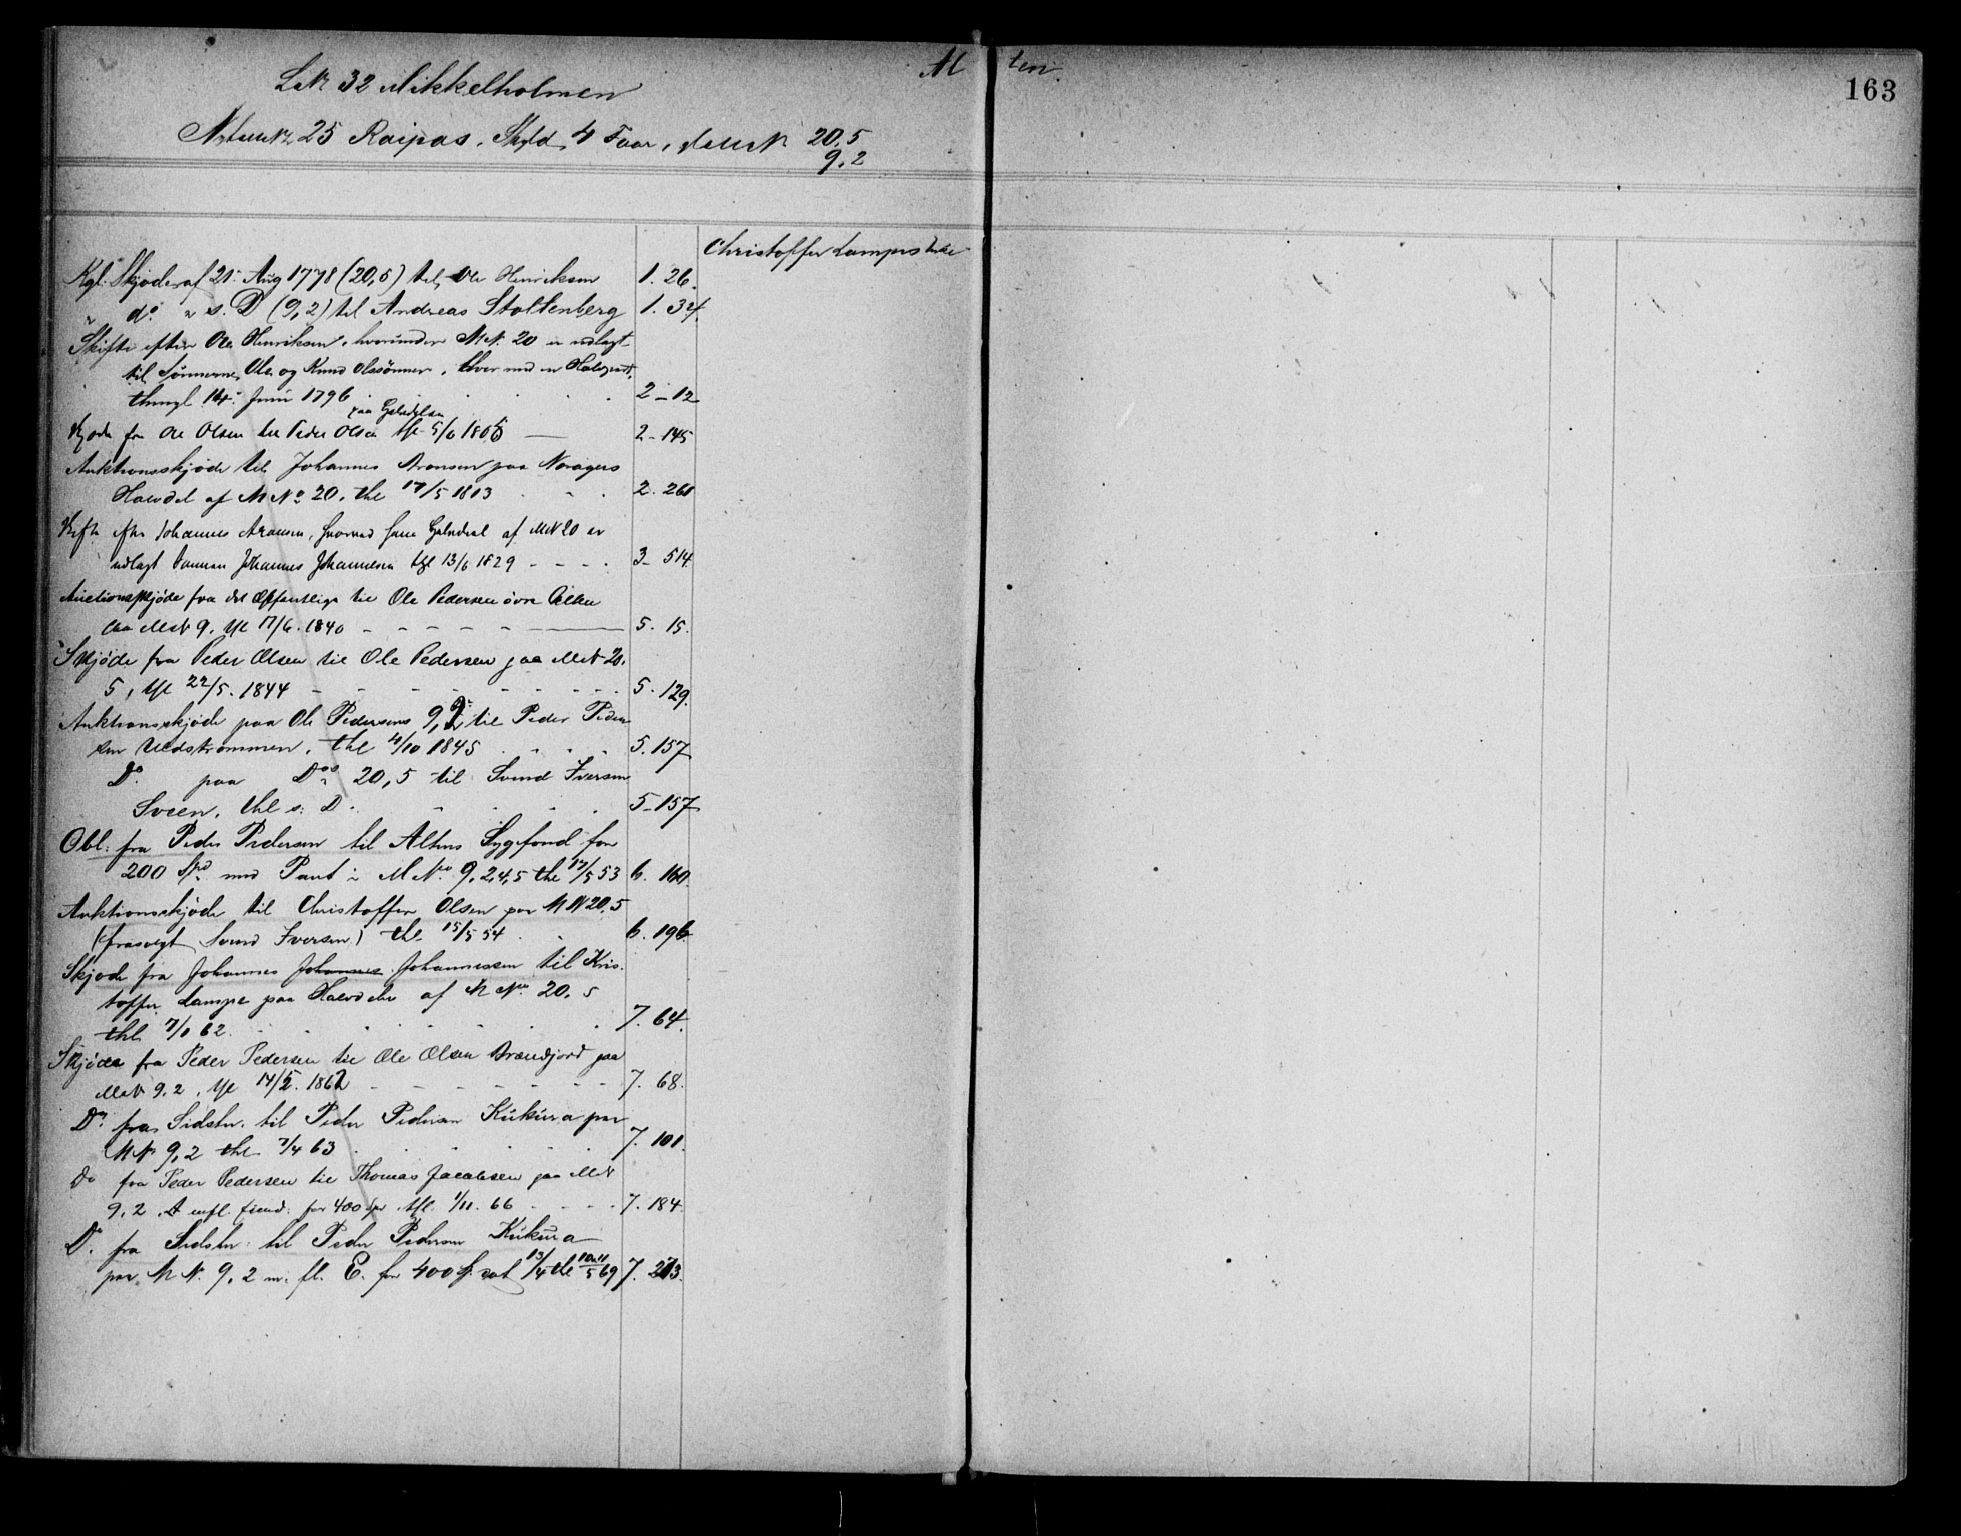 163
L.N. 32 Mikkelholmen
25 Raipas. Skyld 4 Faar, 20,5
9,2
Christoffer Lampes
Kgl. Skjøde af 21. Aug 1778 (20,5) til Ole Henriksen 1. 26.
do. s. D (9,2) til Andreas Stoltenberg 1. 34.
Skifte efter Ole Henriksen, hvorunder M.N. 20 er udlagt
til Sønnerne, Ole og Knud Olssønner, hver med en Halvpart,
thingl. 14. Juni 1796 2 - 12
paa Halvdelen
fra Ole Olsen til Peder Olsen 2 - 145
Auktionsskjøde til Johannes Aronsen paa
Halvdel af M No 20. thl 17/5 1813 2. 261
efter Johannes Aronsen, hvorved hans Halvdeel af M.N 20 er
udlagt Sønnen Johannes Johannesen thgl 13/6 1829 3 - 514
Auctionsskjøde fra det Offentlige til Ole Pedersen øvre
paa MatN 9. thl 17/6. 1840 5. 15.
Skjøde fra Peder Olsen til Ole Pedersen paa MatN 20.
5, thl 22/5. 1844 5. 129.
Auktionsskjøde paa Ole Pedersens 9,2 til Peder Peder
sen thl 4/10 1845 5. 157
Do. paa Dos 20,5 til Svend Iversen
Sveen, thl s. D. 5 - 157
Obl. fra Peder Pedersen til Altens Sygefond for
200 Spd med Pant i M No. 9, 2,4,5 thl 17/5 53 6. 160.
Auktionsskjøde til Christoffer Olsen paa M N 20,5
(frasolgt Svend Iversen) thl 15/5 54 6. 196
Skjøde fra Johannes Johannes Johannessen til Kris.
toffer Lampe paa Halvdelen af M No. 20, 5
thl 62. 7. 64.
Skjøde fra Peder Pedersen til Ole Olsen paa
MatN 9.2, thl 14/5. 1862 7. 68.
Do. fra Sidstn. til Peder Pedersen Kukura paa
M N 9,2 thl 7/4 63 7. 101.
Do fra Peder Pedersen til Thomas Jacobsen paa MatN
9,2 for 400 thl. 1/11. 66 7. 184.
Do. fra Sidstn. til Peder Pedersen Kukura
paa M N. 9,2 m. fl. E. for 400 dat 13/4 thl 69 7. 273.